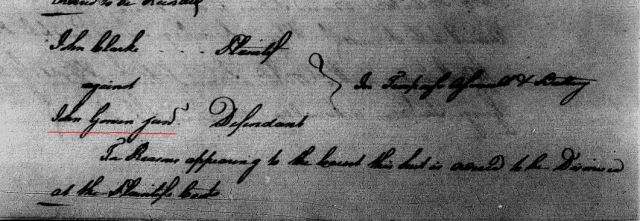 ordered to be Recorded
John Clarke Plaintiff
against
In Trespass Assault & Battery
John Gowen junr. Defendant
For Reasons appearing to the Court this Suit is ordered to be Dismissed
at the Plaintiffs Costs